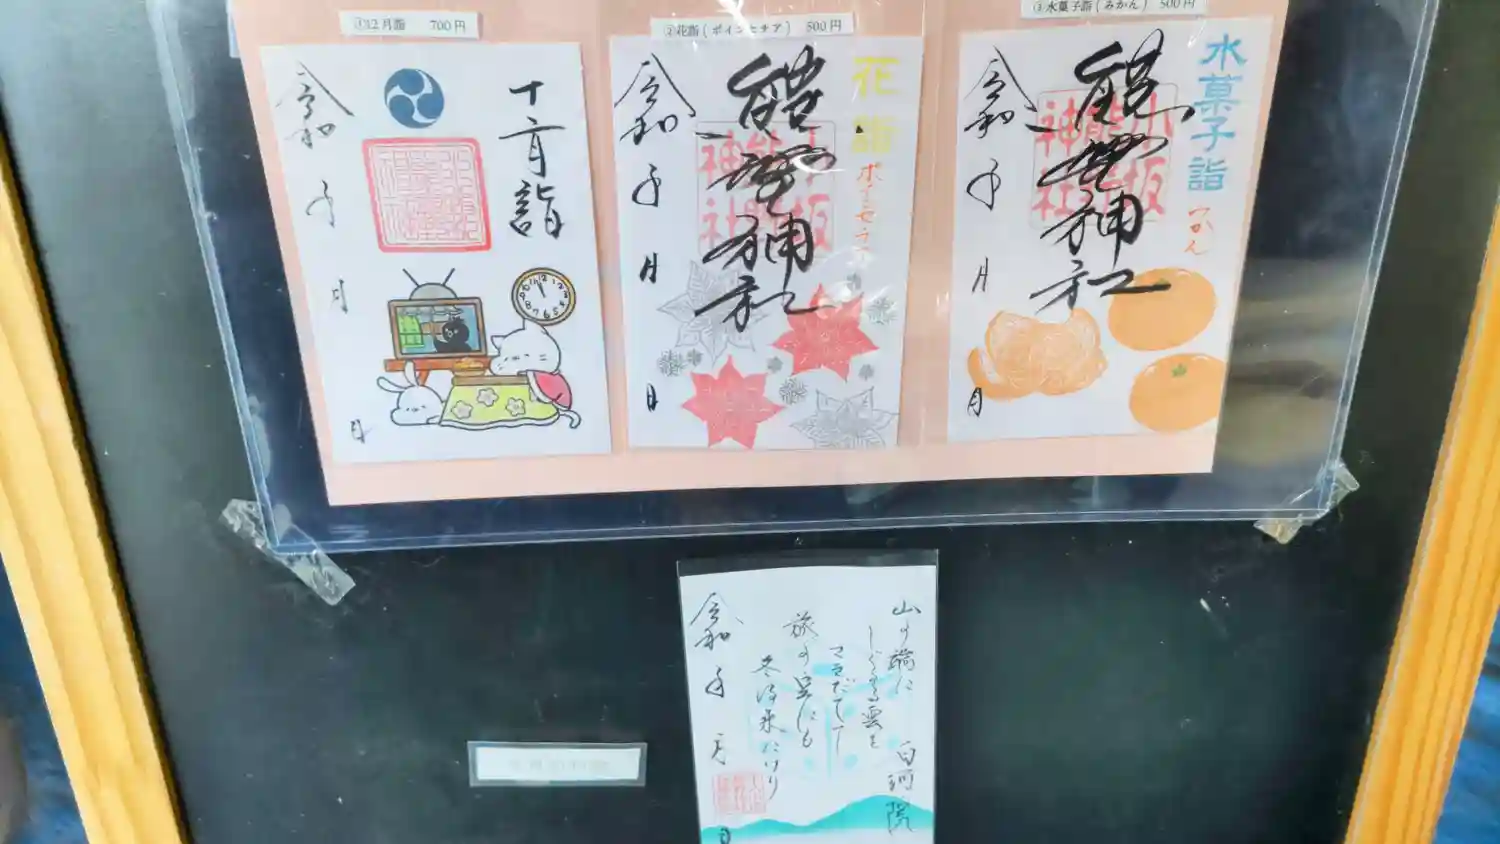 ①12月詣 700円
②花詣(ポインセチア) 500円
③水菓子詣(みかん) 500円
十二月詣
令和 年 月 日
花詣
ポインセチア
熊野神社
令和 年 月 日
水菓子詣
みかん
熊野神社
令和 年 月 日
山の端に
しぐるる雲を
さきだてて
旅の空にも
冬は来にけり
白河院
令和 年 月 日